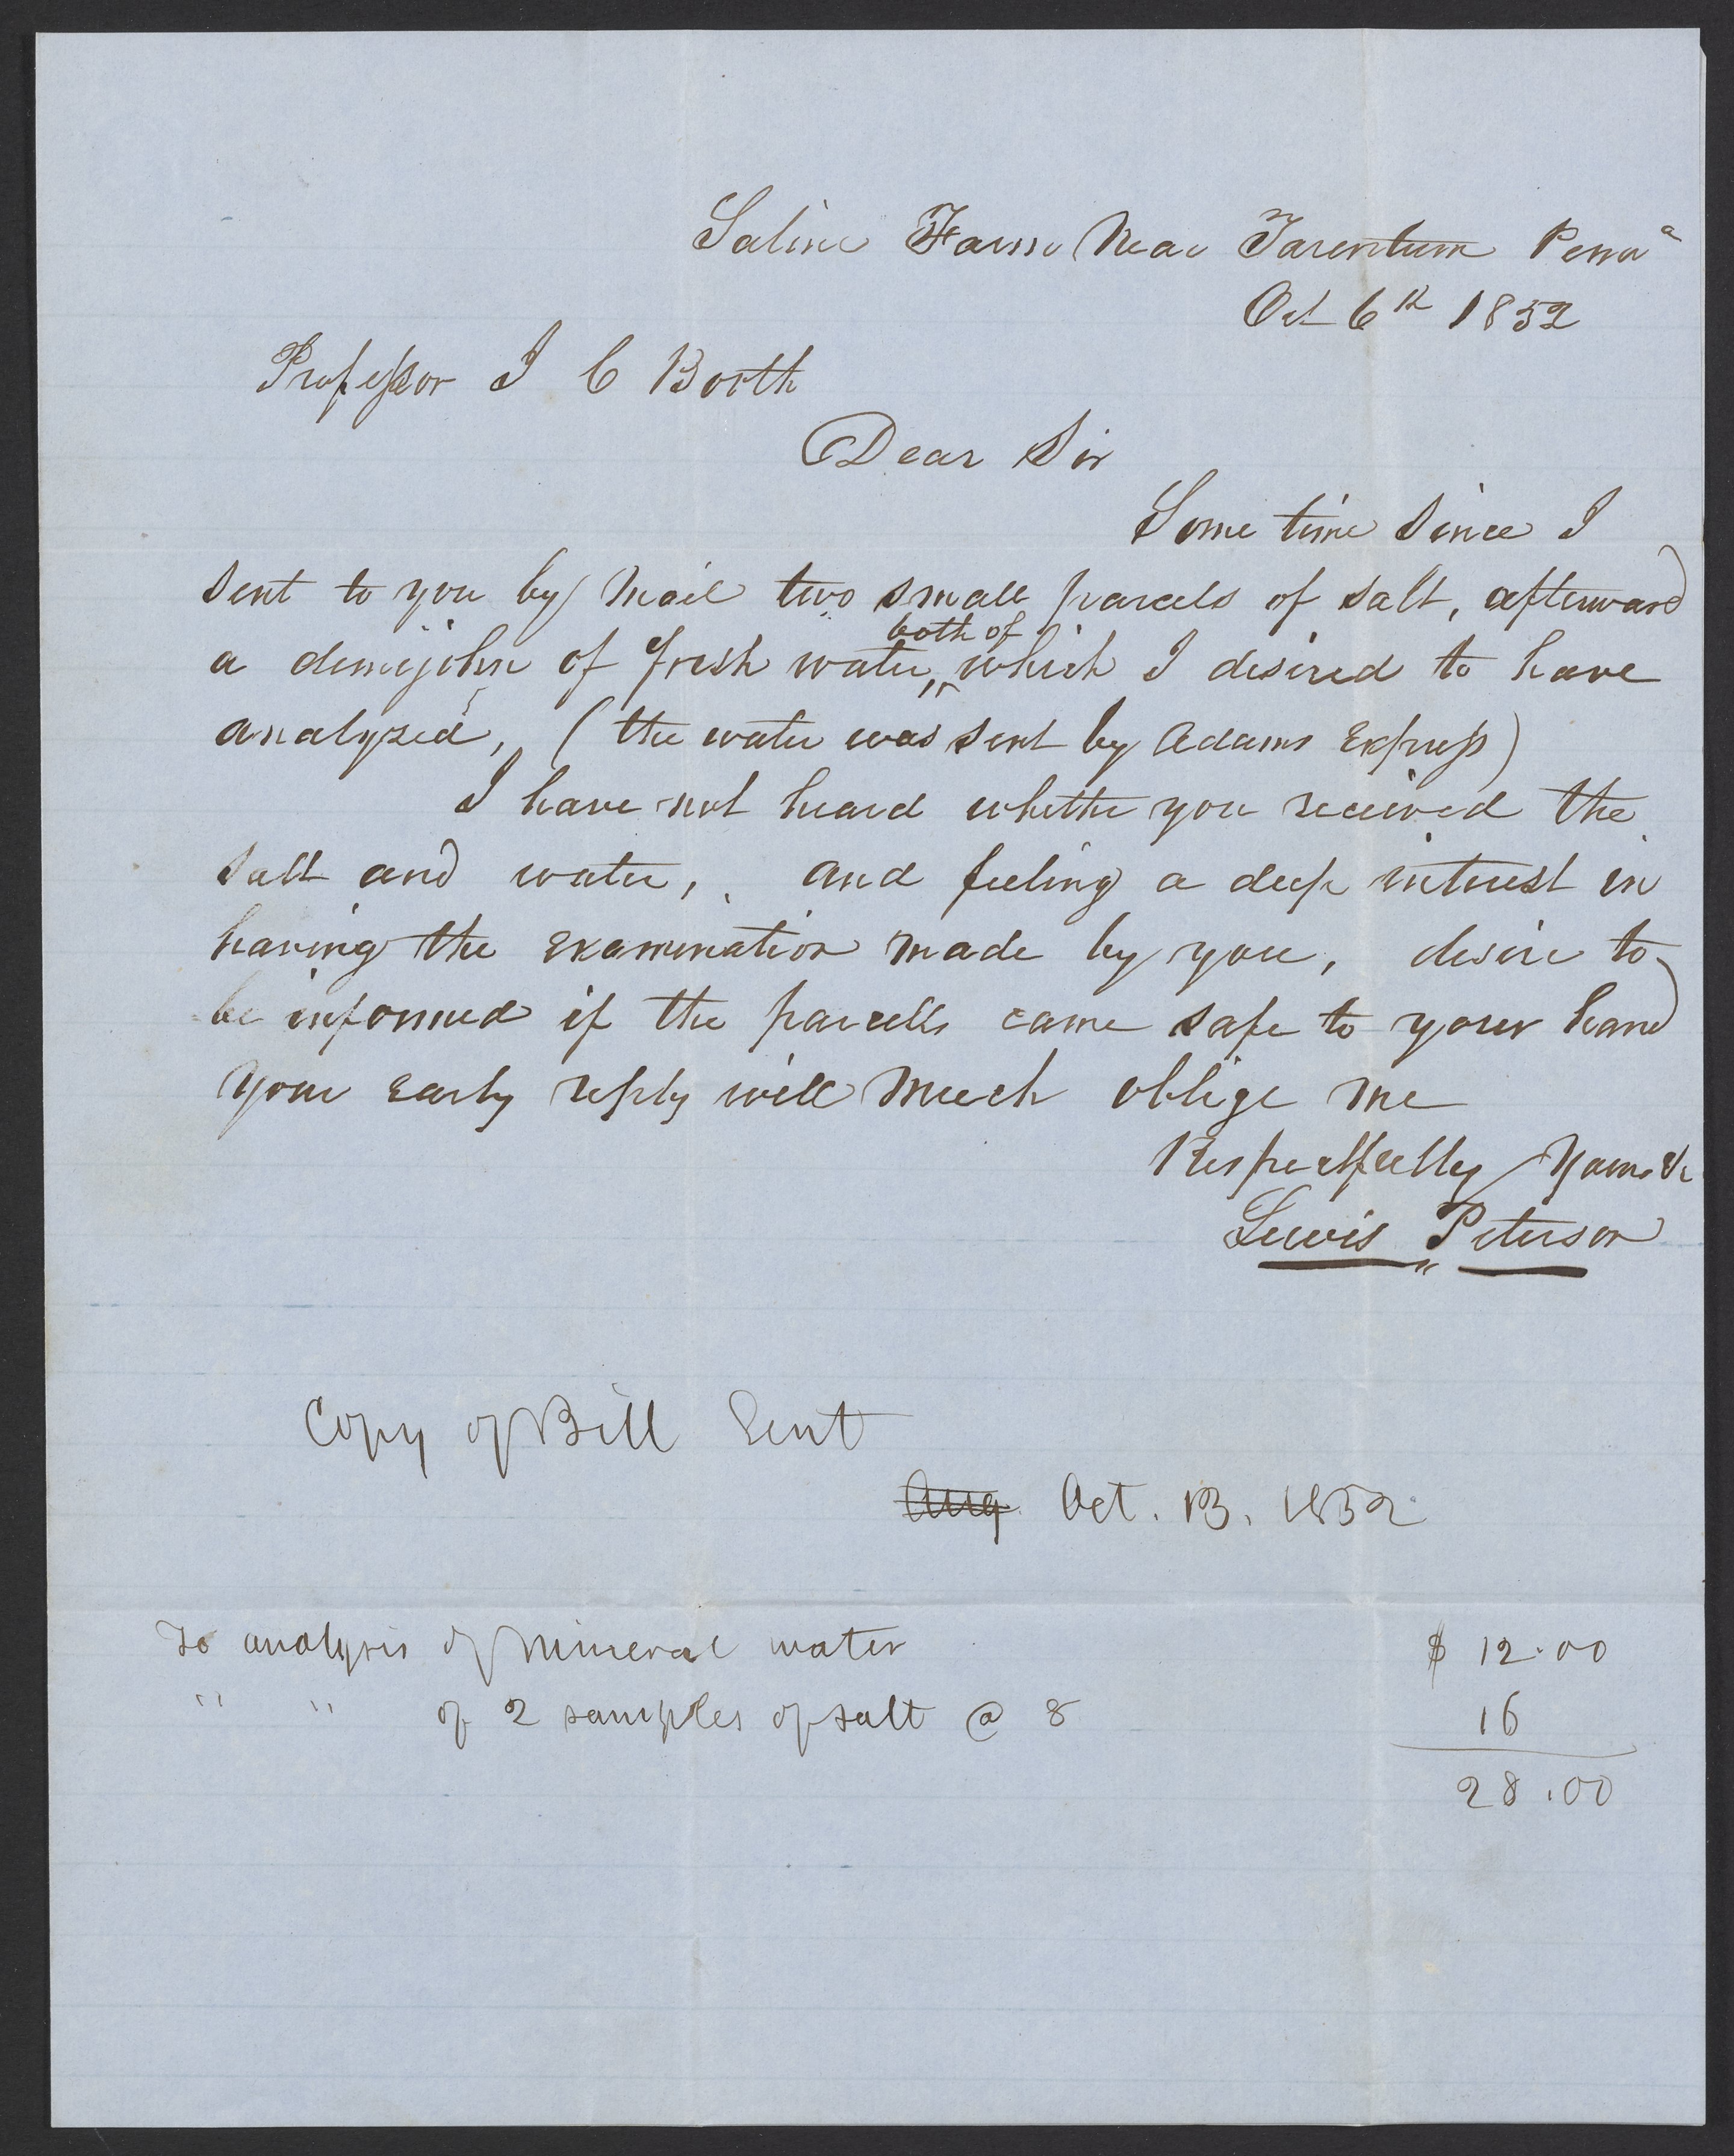 Saline Farm Near Tarentum Penna
Oct 6th 1852
Professor J C Booth
Dear Sir
Some time since I
sent to you by Mail two small parcels of salt, afterward
a demijohn of fresh water, both of which I desired to have
analyzed, (the water was sent by Adams Express)
I have not heard whether you received the
salt and water, and feeling a deep interest in
having the examination made by you, desire to
be informed if the parcells came safe to your hand
Your early reply will much oblige me
Respectfully Yours &c
Lewis Peterson
Copy of Bill Sent
Aug Oct. 13. 1852
To analysis of Mineral water $ 12.00
" " of 2 samples of salt @ 8 16
28.00